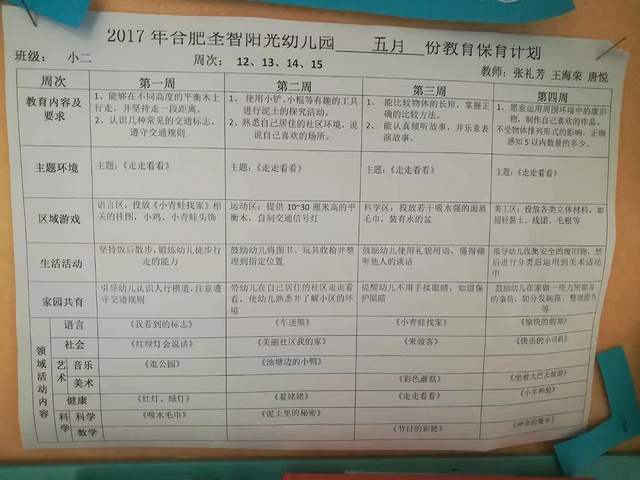 2017 年合肥圣智阳光幼儿园 五月 份教育保育计划
班级： 小二 周次： 12、13、14、15 教师：张礼芳 王海荣 唐悦
周次 第一周 第二周 第三周 第四周
教育内容及要求
1、能够在不同高度的平衡木上
行走，并坚持走一段距离。
2、认识几种常见的交通标志，
遵守交通规则
1、 使用小铲、小棍等有趣的工具
进行泥土的探究活动。
2、熟悉自己居住的社区环境，说
说自己喜欢的场所。
1、 能比较物体的长短，掌握正
确的比较方法。
2、 能认真倾听故事，并乐意表
演故事。
1、愿意运用周围环境中的废旧
物，制作自己喜欢的作品。
不受物体排列形式的影响，正确
感知 5 以内数量的多少。
主题环境 主题：《走走看看》 主题：《走走看看》 主题：《走走看看》 主题：《走走看看》
区域游戏
语言区：投放《小青蛙找家》相
关的挂图，小鸡、小青蛙头饰
运动区：提供 10~30 厘米高的平
衡木，自制交通信号灯
科学区：投放若干吸水强的面质
毛巾，装有水的盆
美工区：投放各类立体材料，如
超轻黏土、线团、毛根等
生活活动
坚持饭后散步，锻炼幼儿徒步行
走的能力
鼓励幼儿将图书、玩具收拾并整
理到指定位置
鼓励幼儿使用礼貌用语，懂得倾
听他人的谈话
指导幼儿收集安全的废旧物，然
后进行分类后运用到美术活动
中
家园共育
引导幼儿认识人行横道，注意遵
守交通规则
带幼儿在自己居住的社区走走看
看，使幼儿熟悉并了解小区的环
境
提醒幼儿不用手揉眼睛，知道保
护眼睛
鼓励幼儿在家做一些力所能及
的事情，如分发碗筷、整理图书
等
领域活动内容
语言 《我看到的标志》 《车迷熊》 《小青蛙找家》 《愉快的假期》
社会 《红绿灯会说话》 《美丽社区我的家》 《来做客》 《快乐的小司机》
艺术 音乐 《逛公园》 《池塘边的小鸭》
美术 《彩色蘑菇》 《坐着大巴去旅游》
健康 《红灯、绿灯》 《看姥姥》 《走走看看》 《小羊和狼》
科学 科学 《吸水毛巾》 《泥土里的秘密》
数学 《节日的彩链》 《神奇的魔术》